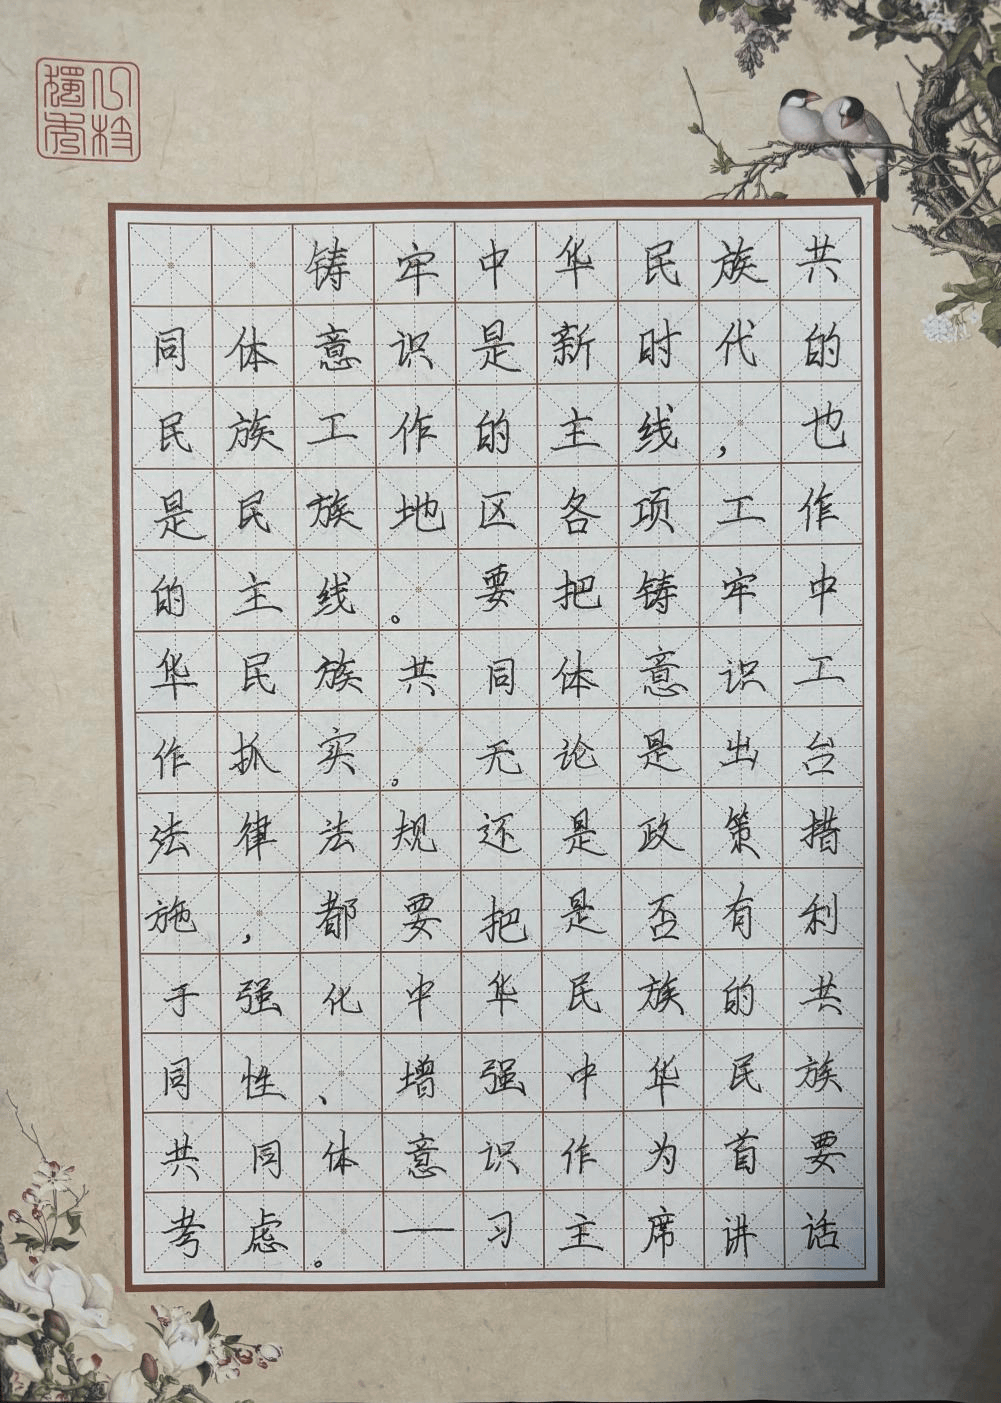 铸牢中华民族共
同体意识是新时代的
民族工作的主线，也
是民族地区各项工作
的主线。要把铸牢中
华民族共同体意识工
作抓实。无论是出台
法律法规还是政策措
施，都要把是否有利
于强化中华民族的共
同性、增强中华民族
共同体意识作为首要
考虑。—习主席讲话